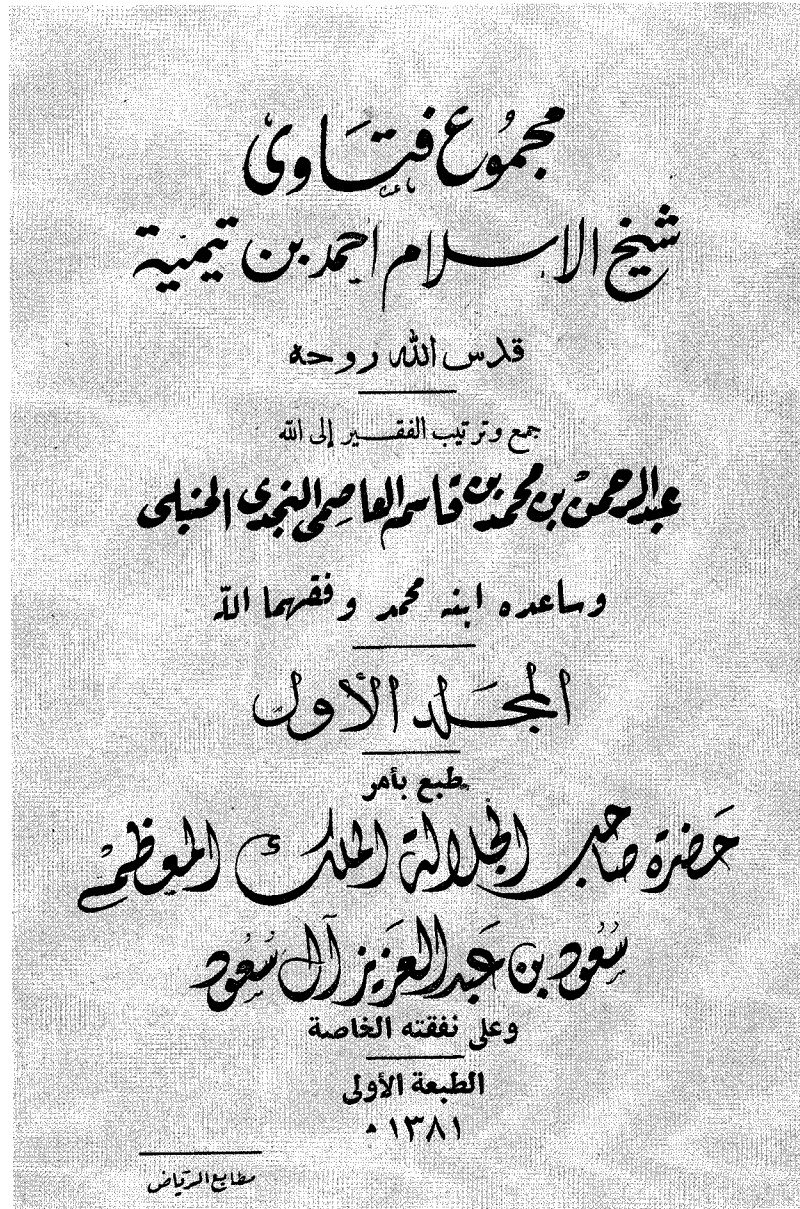 مجموع فتاوى
شيخ الاسلام احمد بن تيمية
قدس الله روحه
جمع وترتيب الفقير إلى الله
عبد الرحمن بن محمد بن قاسم العاصمى النجدى الحنبلى
وساعده ابنه محمد وفقهما الله
المجلد الأول
طبع بأمر
حضرة صاحب الجلالة الملك المعظم
سعود بن عبد العزيز آل سعود
وعلى نفقته الخاصة
الطبعة الأولى
١٣٨١ ه
مطابع الرياض